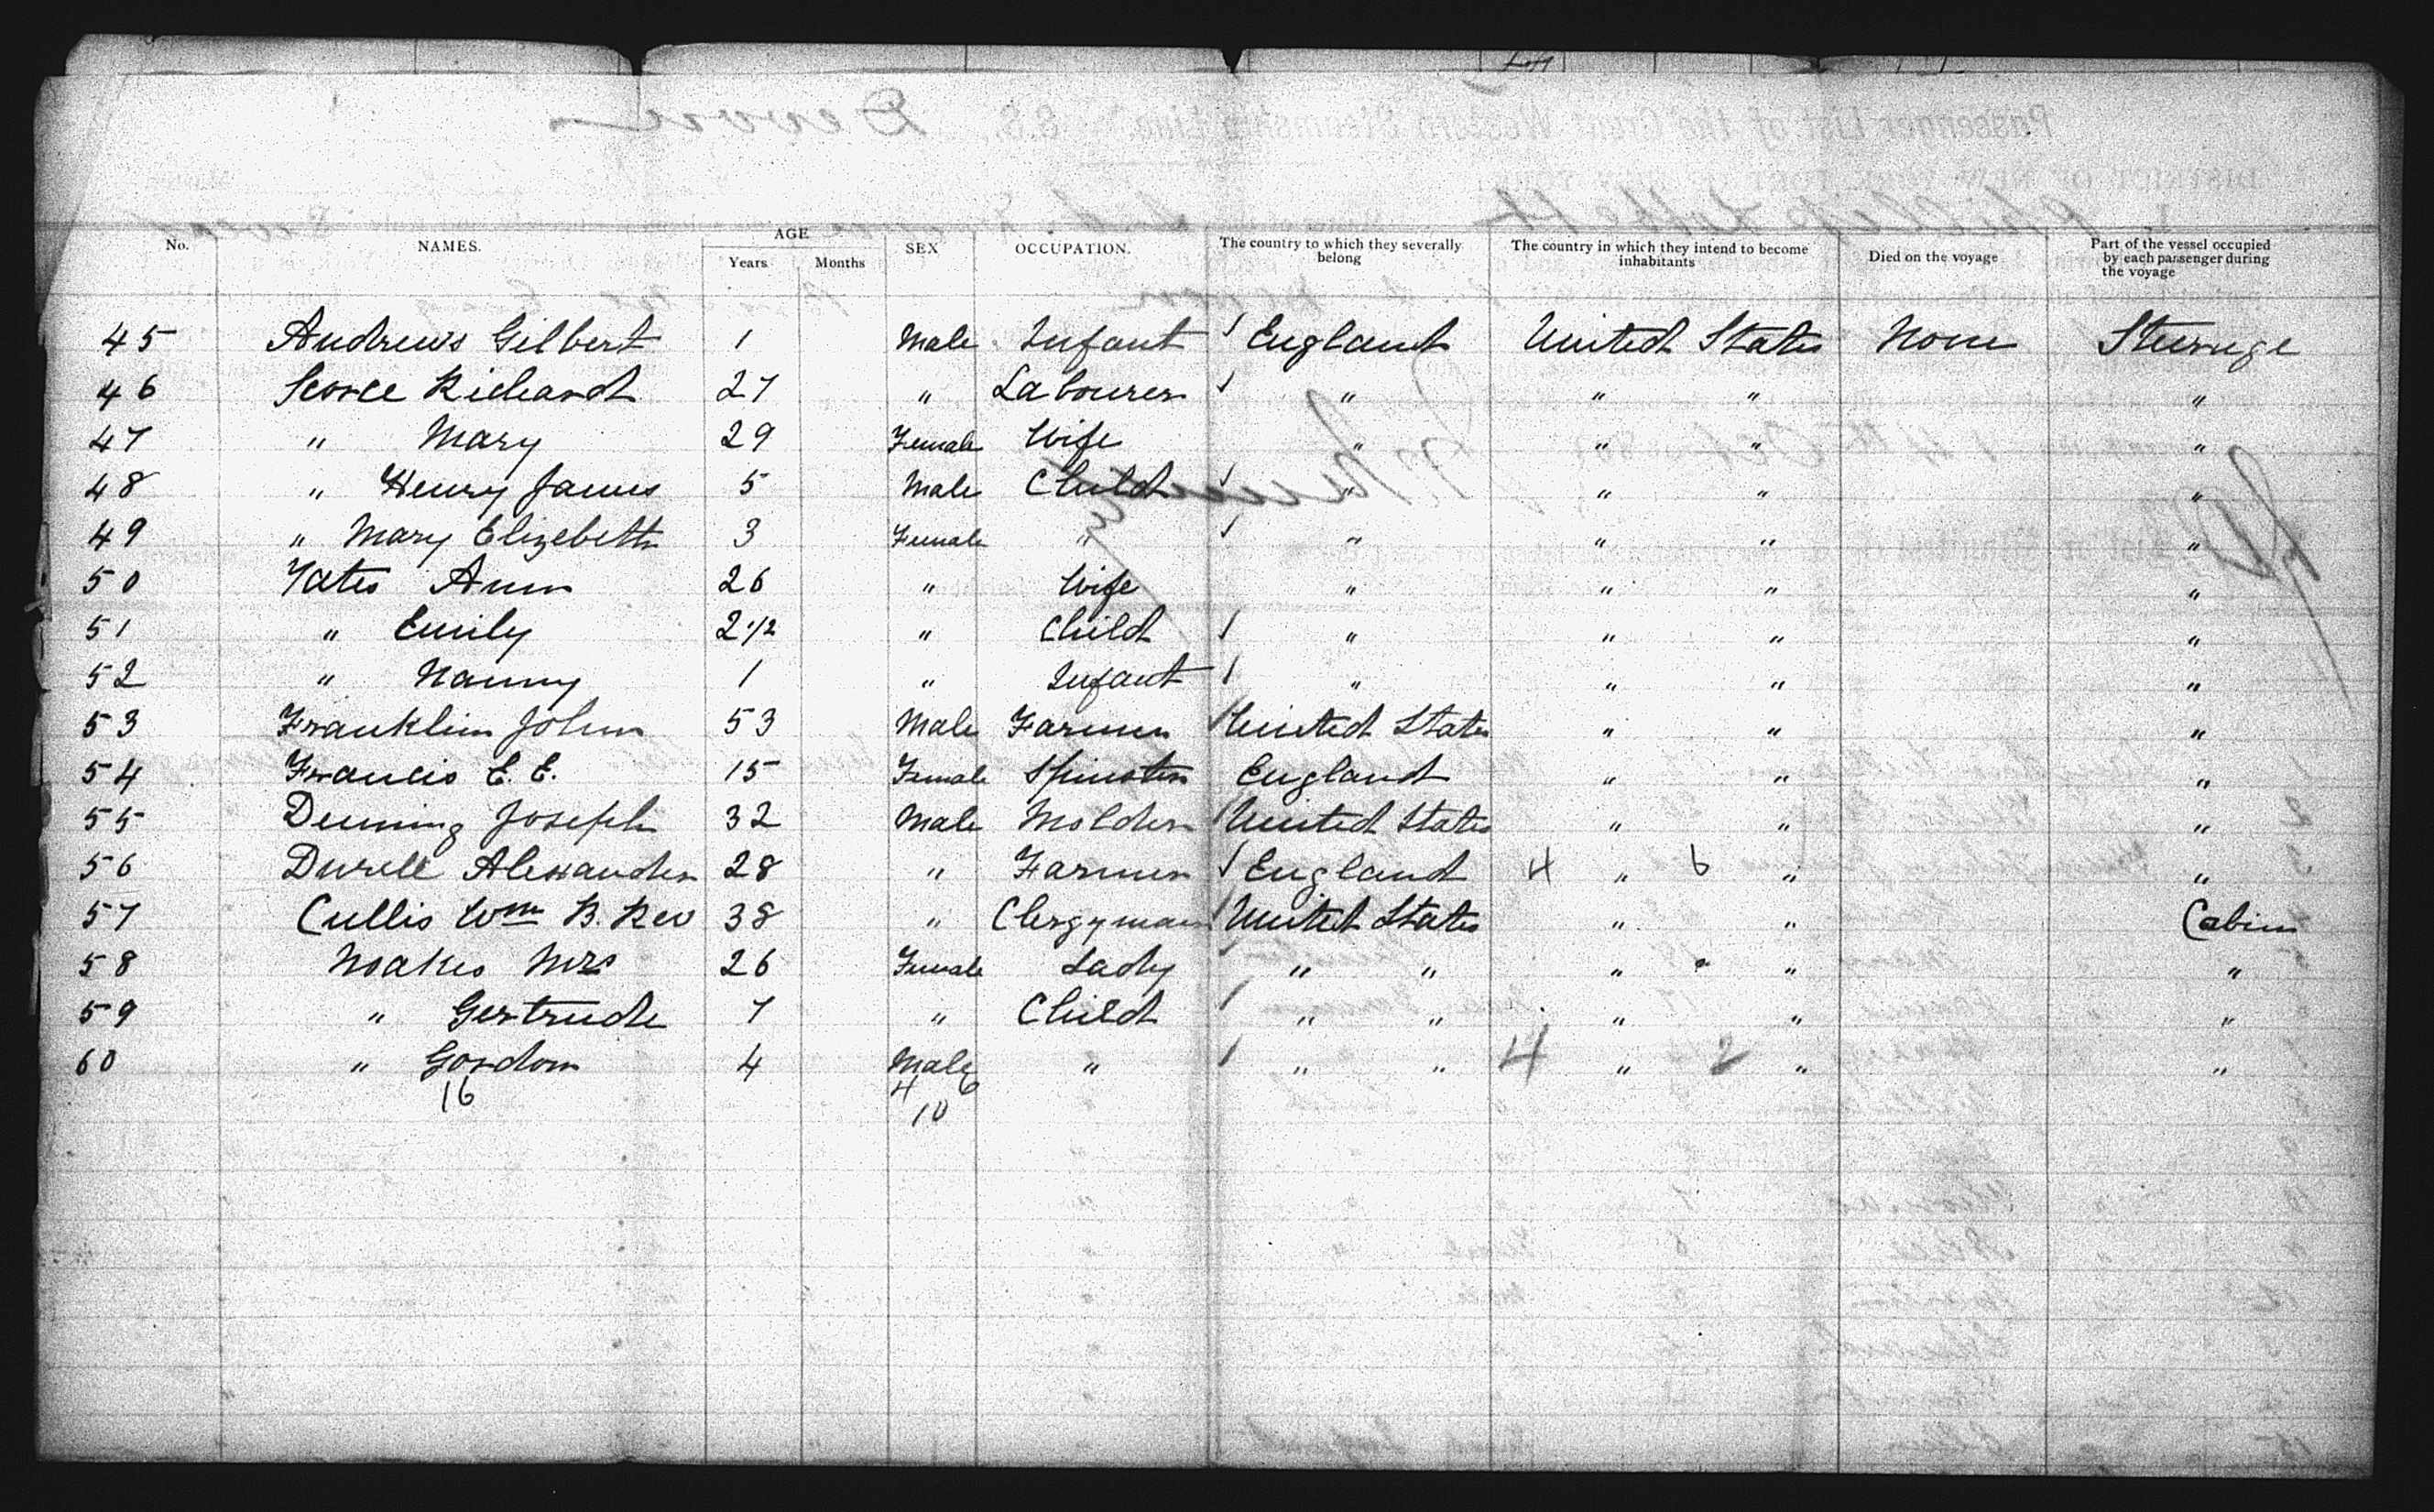 No. NAMES. AGE Years Months SEX OCCUPATION. The country to which they severally belong The country in which they intend to become inhabitants Died on the voyage Part of the vessel occupied by each passenger during the voyage
45 Andrews Gilbert 1 Male Infant England United States None Steerage
46 Scorce Richard 27 " Labourer " " " "
47 " Mary 29 Female Wife " " " "
48 " Henry James 5 Male Child " " " "
49 " Mary Elizebeth 3 Female " " " " "
50 Yates Ann 26 " Wife " " " "
51 " Emily 2 1/2 " Child " " " "
52 " Nanny 1 " Infant " " " "
53 Franklin John 53 Male Farmer United States " " "
54 Francis E. E. 15 Female Spinster England " " "
55 Denning Joseph 32 Male Molder United States " " "
56 Durell Alexander 28 " Farmer England 4 " 6 " "
57 Cullis Wm B. Rev 38 " Clergyman United States " " Cabin
58 Noakes Mrs 26 Female Lady " " " " "
59 " Gertrude 7 " Child " " " " "
60 " Gordon 4 Male " " " 4 " 2 " "
16 4 6
10